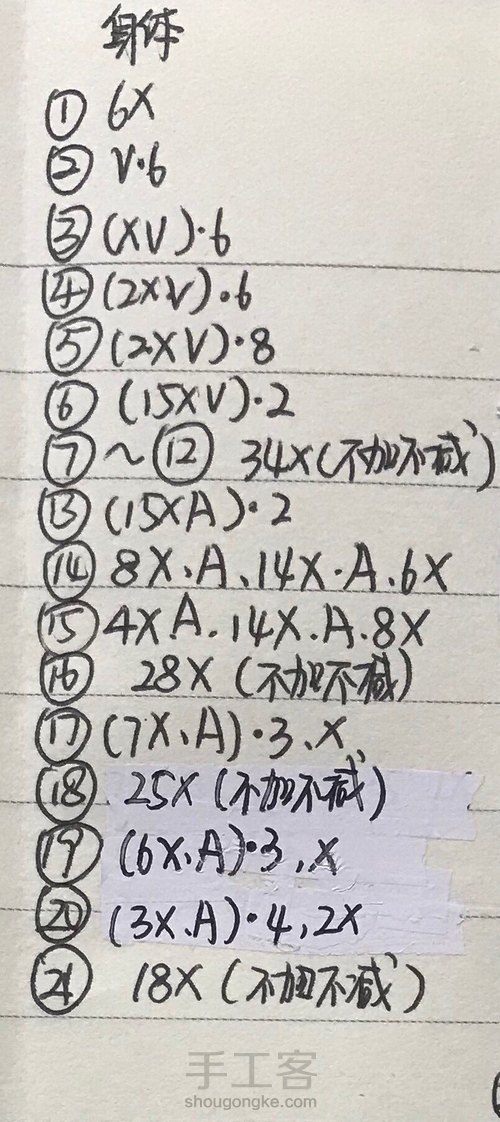 身体
① 6X
② V·6
③ (XV)·6
④ (2XV)·6
⑤ (2XV)·8
⑥ (15XV)·2
⑦~⑫ 34X(不加不减)
⑬ (15XA)·2
⑭ 8X、A、14X·A、6X
⑮ 4X.A.14X.A.8X
⑯ 28X (不加不减)
⑰ (7X、A)·3、X
⑱ 25X (不加不减)
⑲ (6X、A)·3,X
⑳ (3X、A)·4,2X
㉑ 18X (不加不减)
手工客
shougongke.com